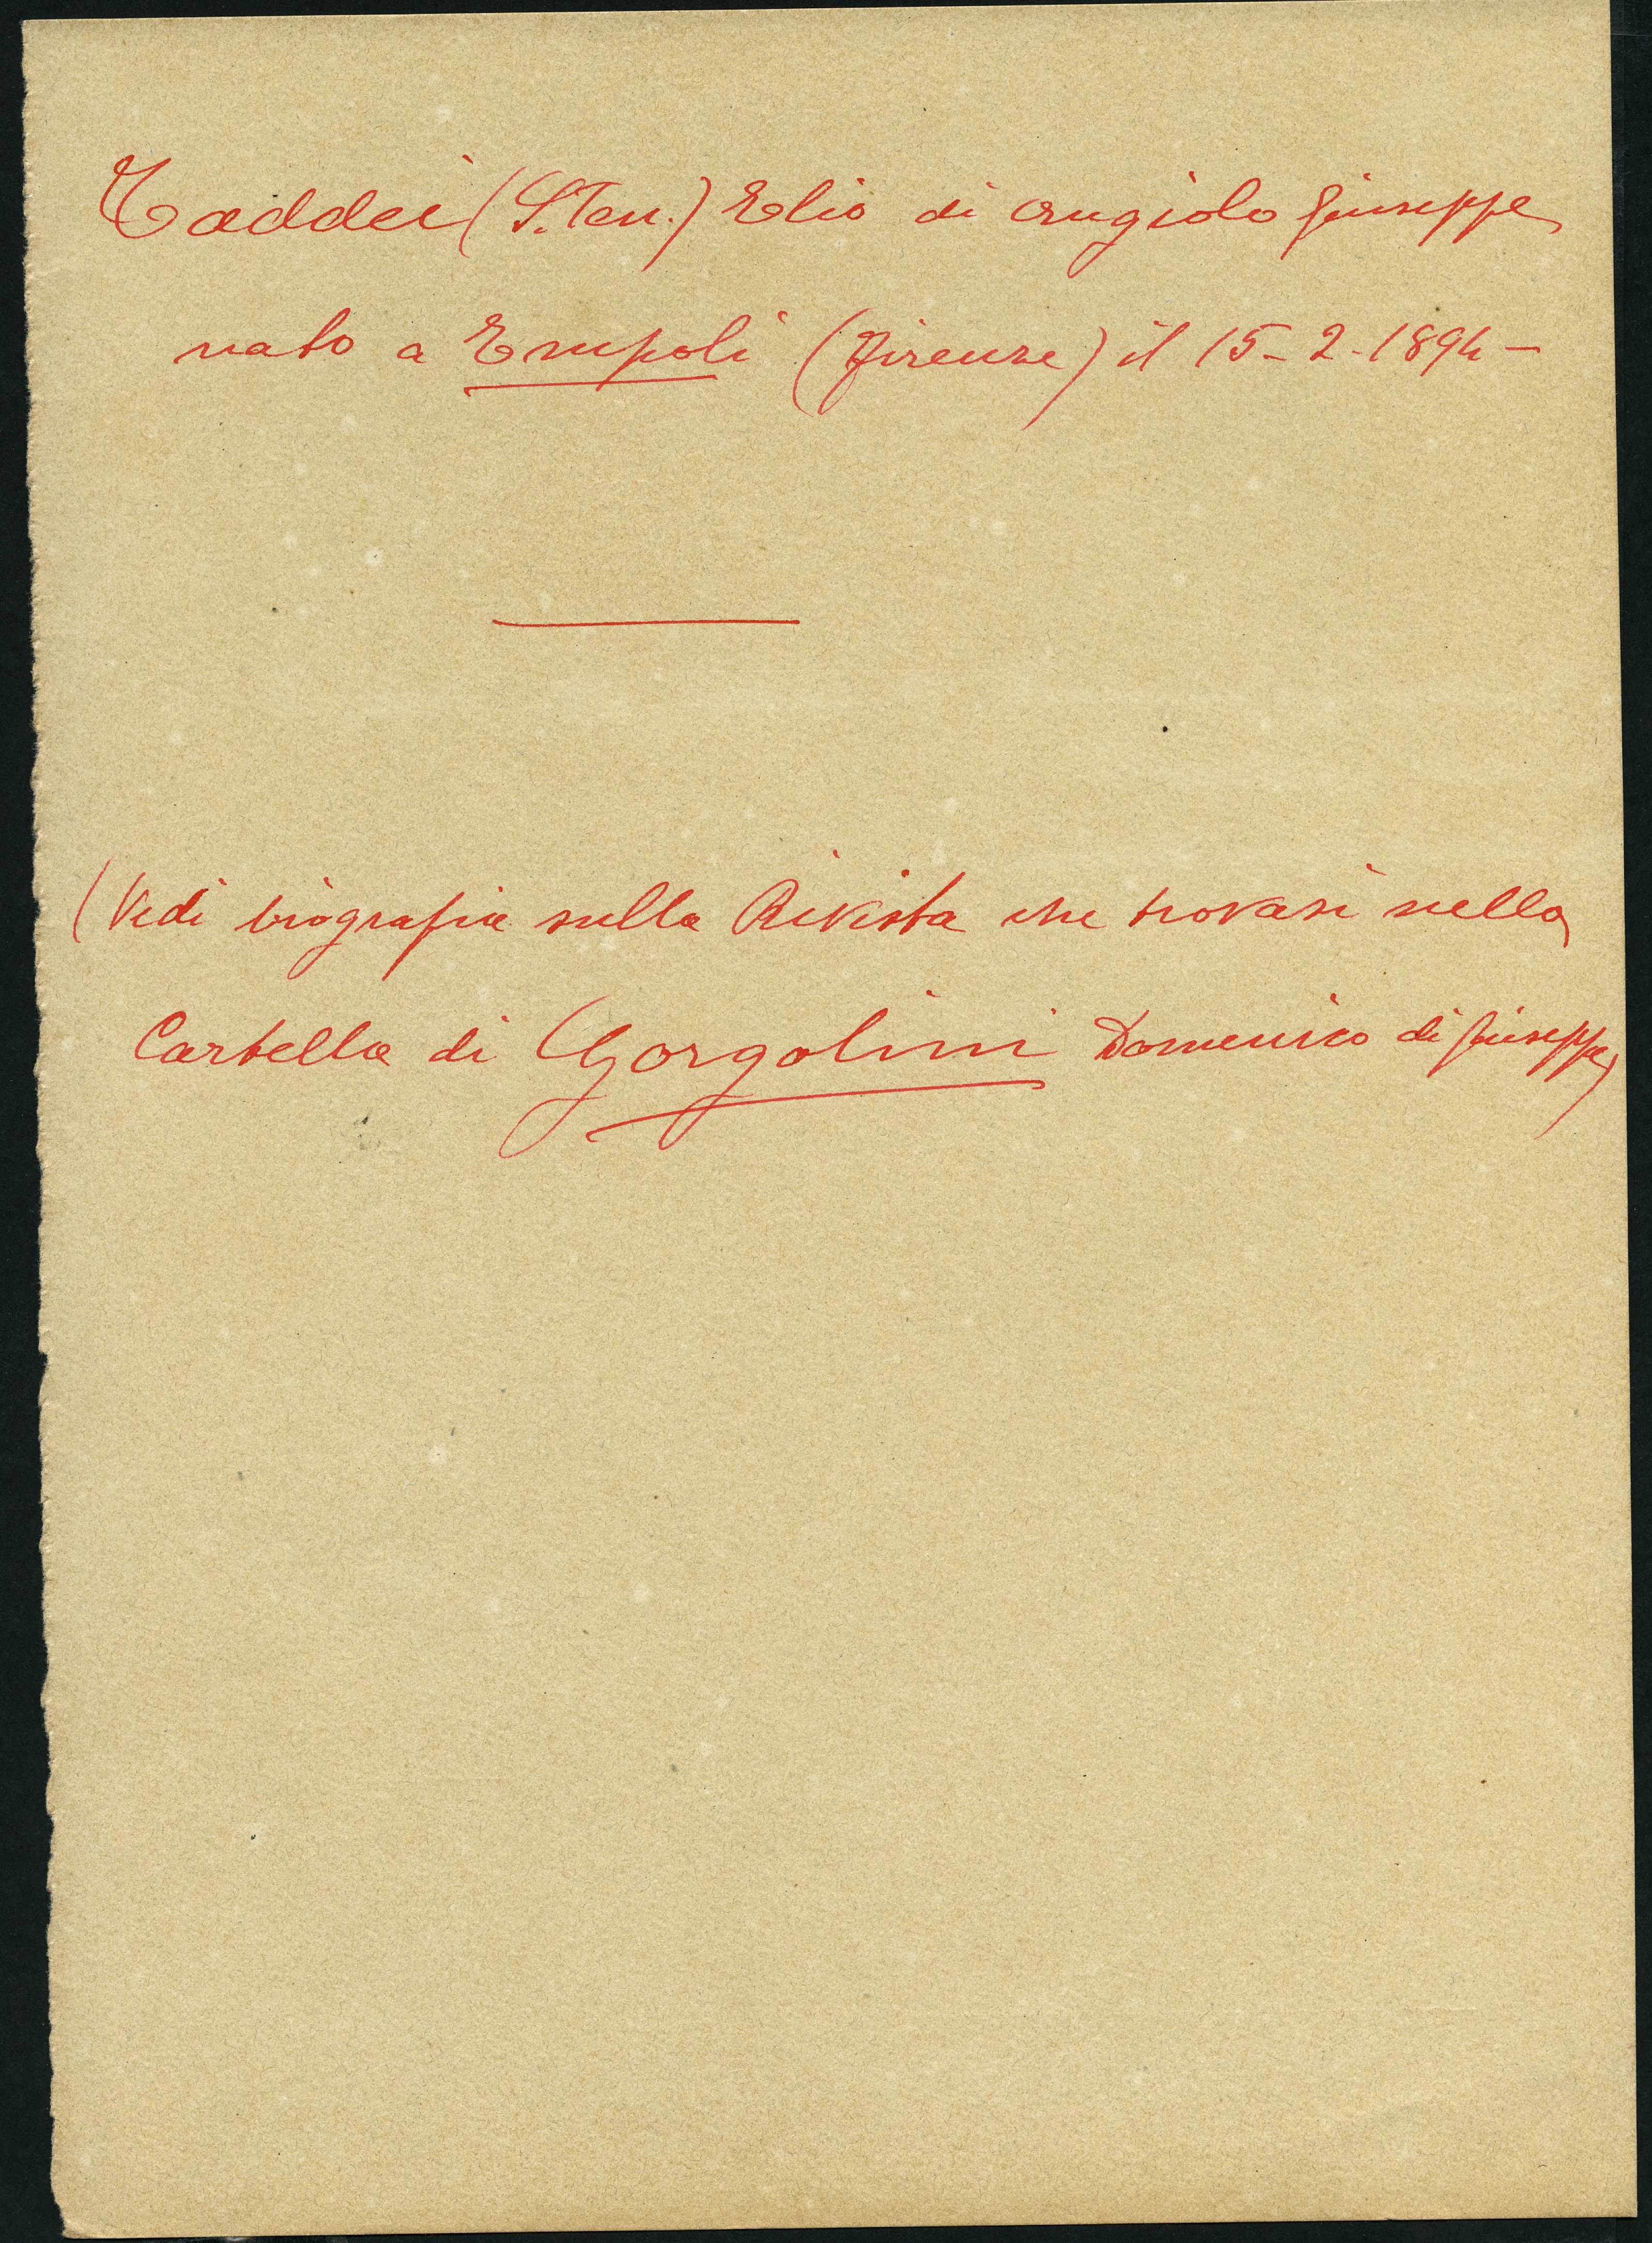 Taddei (S. Ten.) Elio di Angiolo Giuseppe
nato a Empoli (Firenze) il 15-2-1894-
(Vedi biografia sulla Rivista che trovasi nella
Cartella di Gorgolini Domenico di Giuseppe)